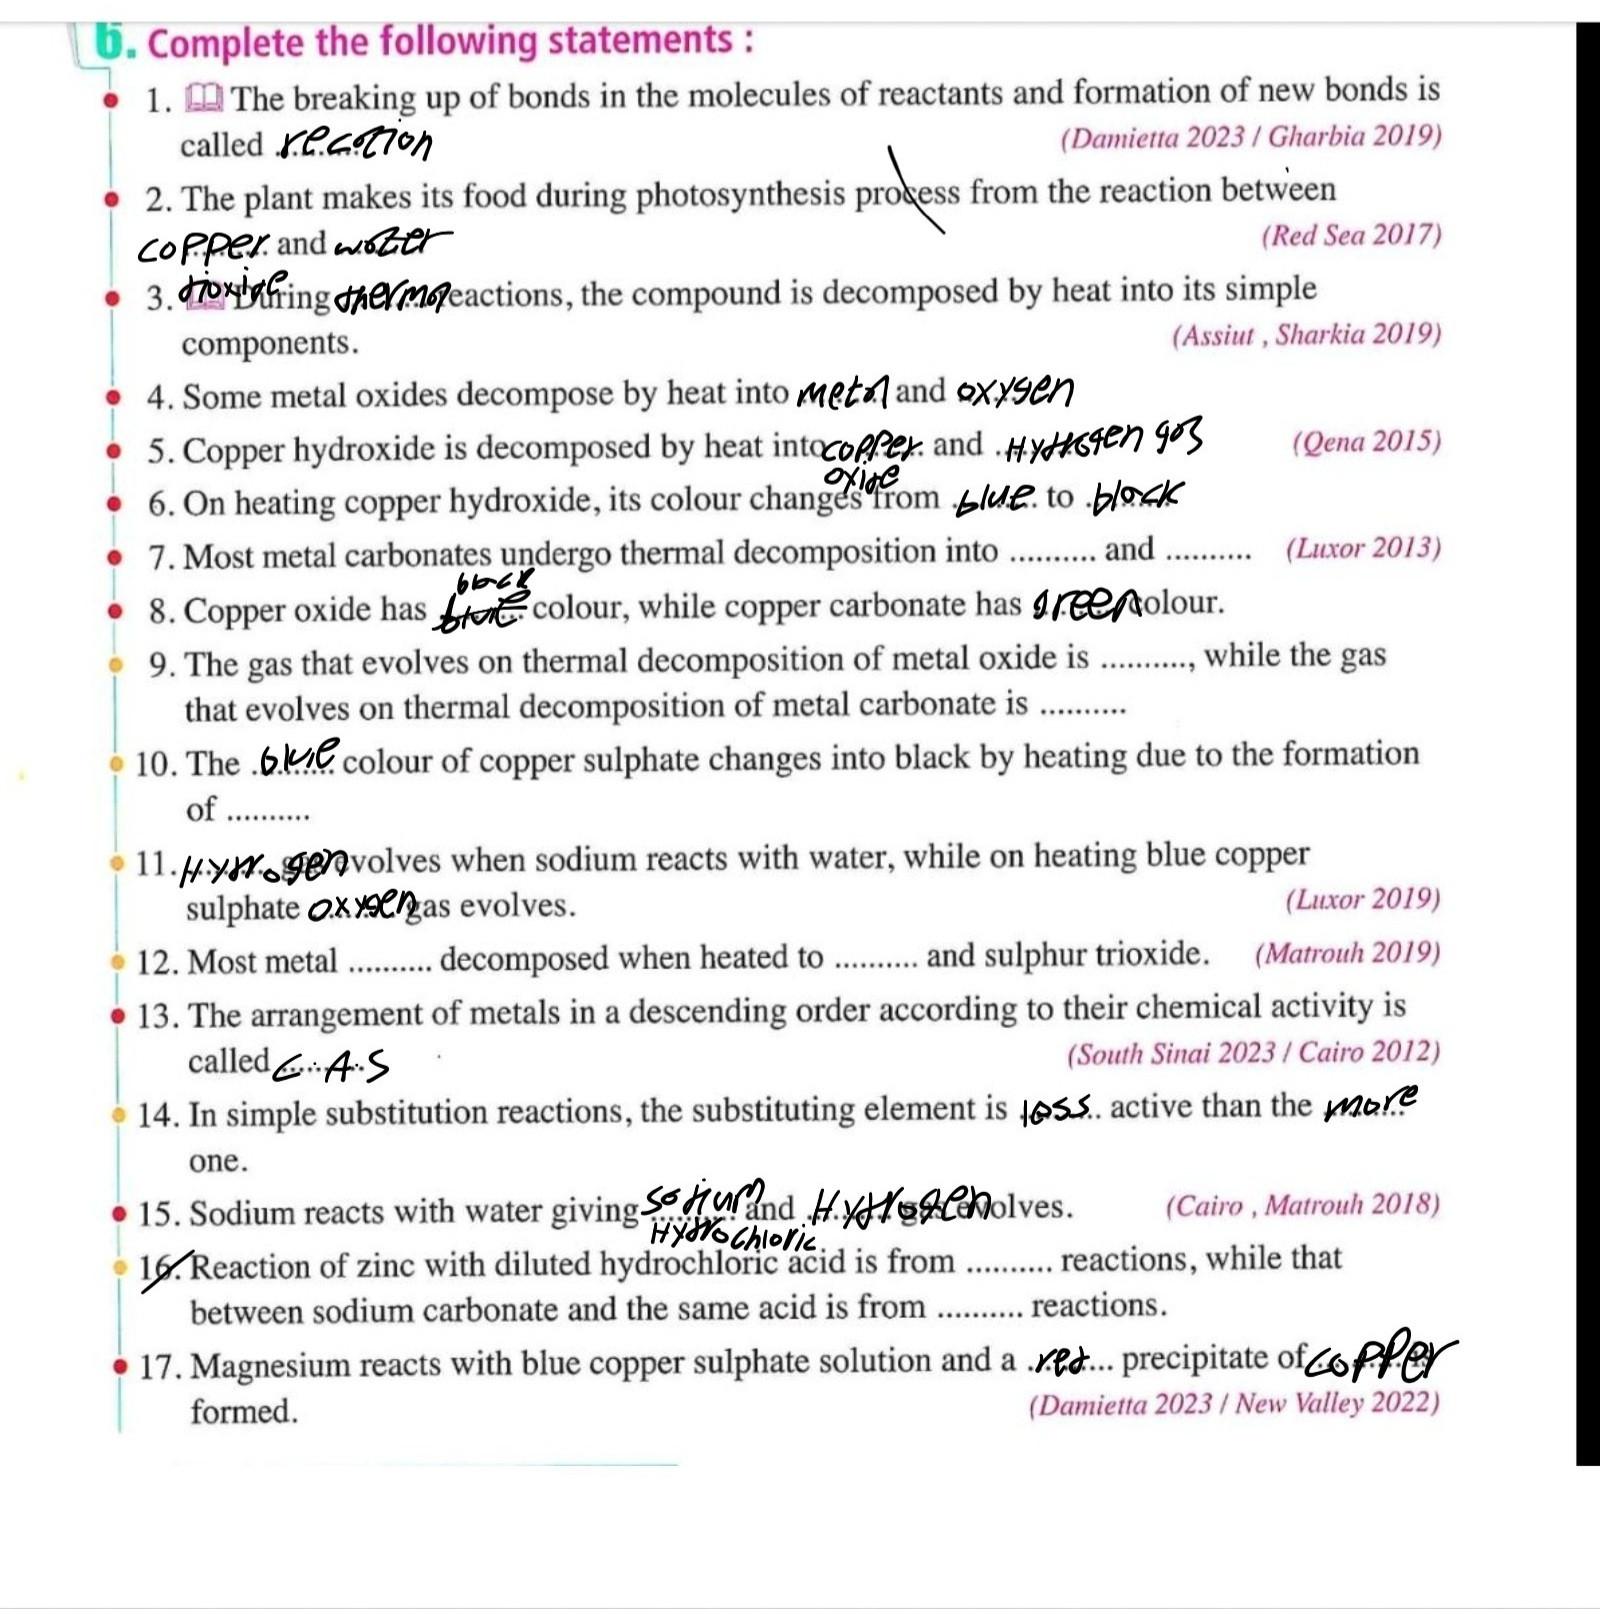 6. Complete the following statements :
1. The breaking up of bonds in the molecules of reactants and formation of new bonds is
called reaction (Damietta 2023 / Gharbia 2019)
2. The plant makes its food during photosynthesis process from the reaction between
copper and water (Red Sea 2017)
dioxide
3. During thermo reactions, the compound is decomposed by heat into its simple
components. (Assiut , Sharkia 2019)
4. Some metal oxides decompose by heat into metal and oxygen
5. Copper hydroxide is decomposed by heat into copper and Hydrogen gas (Qena 2015)
oxide
6. On heating copper hydroxide, its colour changes from blue to black
7. Most metal carbonates undergo thermal decomposition into .......... and .......... (Luxor 2013)
black
8. Copper oxide has blue colour, while copper carbonate has green colour.
9. The gas that evolves on thermal decomposition of metal oxide is .........., while the gas
that evolves on thermal decomposition of metal carbonate is ..........
10. The blue colour of copper sulphate changes into black by heating due to the formation
of ..........
11. Hydrogen evolves when sodium reacts with water, while on heating blue copper
sulphate oxygen gas evolves. (Luxor 2019)
12. Most metal .......... decomposed when heated to .......... and sulphur trioxide. (Matrouh 2019)
13. The arrangement of metals in a descending order according to their chemical activity is
called C.A.S (South Sinai 2023 / Cairo 2012)
14. In simple substitution reactions, the substituting element is less active than the more
one.
15. Sodium reacts with water giving sodium and Hydrogen evolves. (Cairo , Matrouh 2018)
Hydrochloric
16. Reaction of zinc with diluted hydrochloric acid is from .......... reactions, while that
between sodium carbonate and the same acid is from .......... reactions.
17. Magnesium reacts with blue copper sulphate solution and a red precipitate of copper
formed. (Damietta 2023 / New Valley 2022)